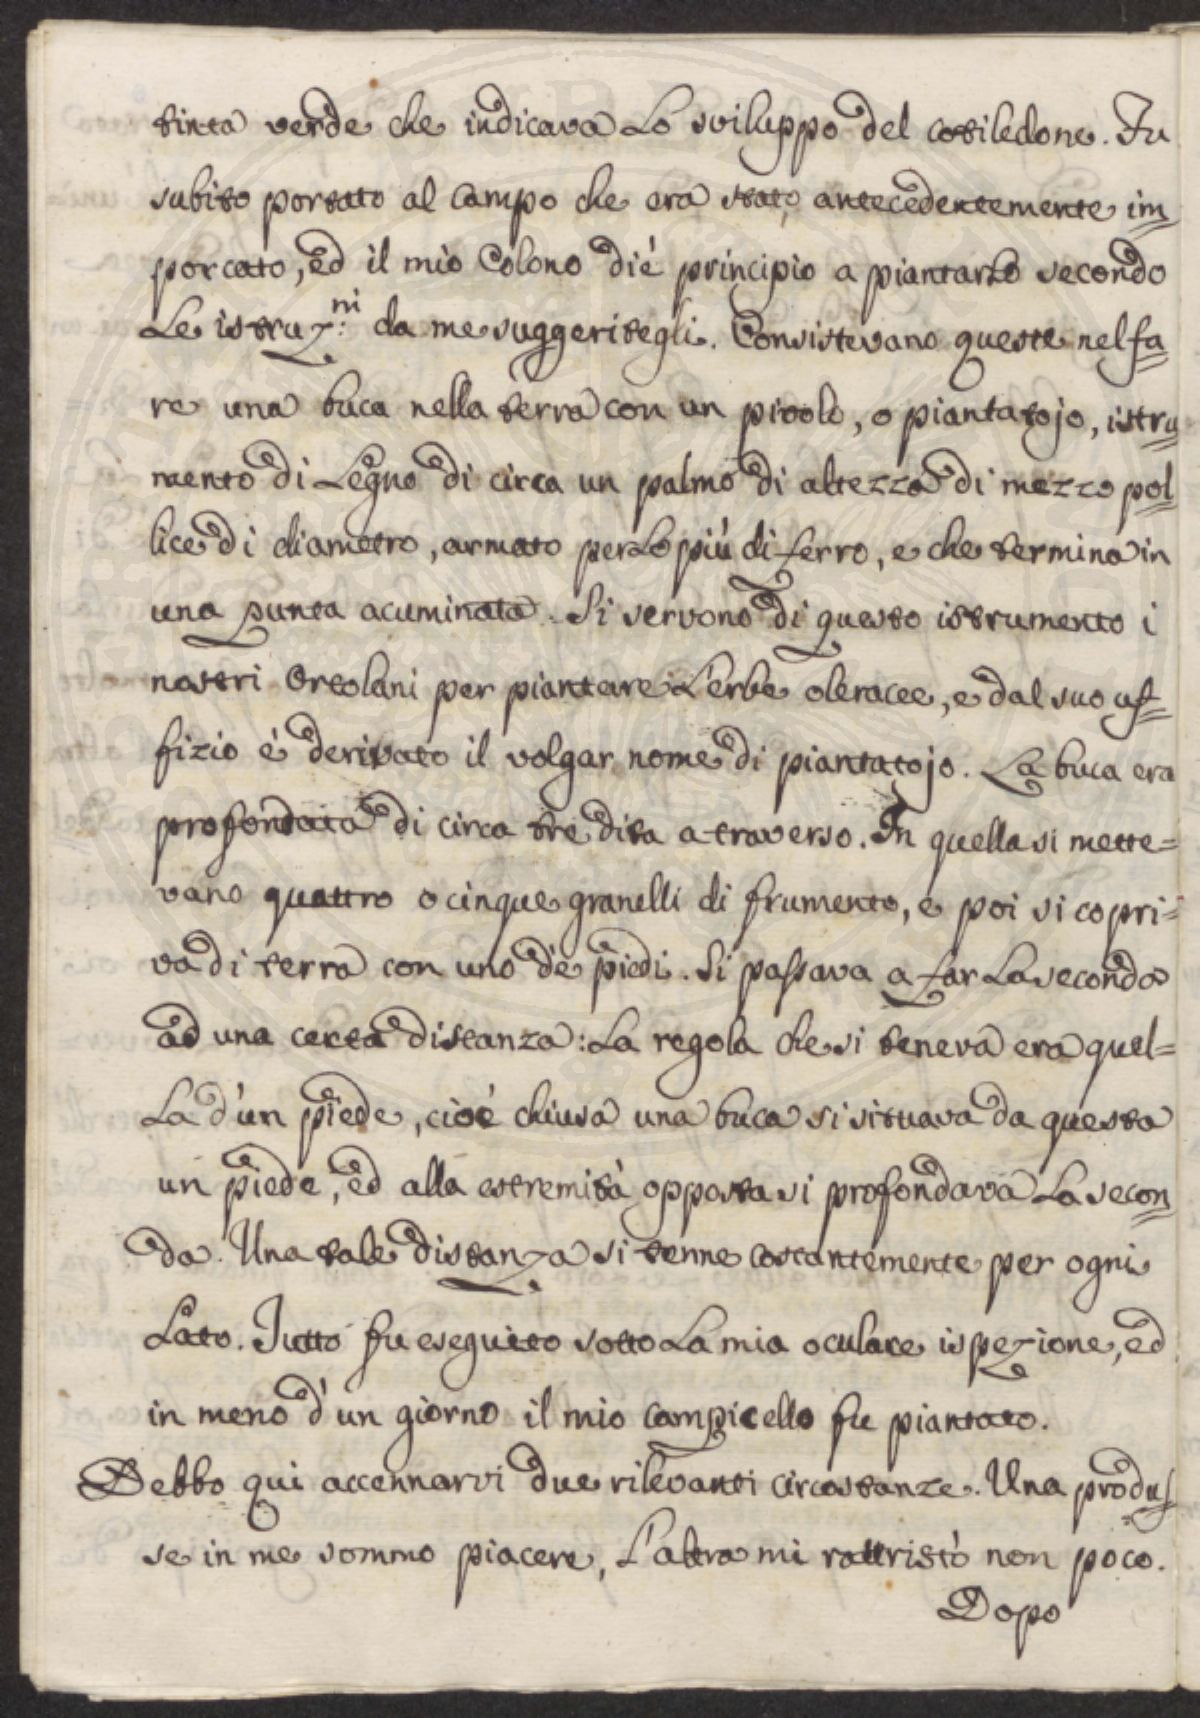 tinta verde che indicava lo sviluppo del cotiledone. Fu
subito portato al campo che era stato antecedentemente im=
porcato, ed il mio Colono diè principio a piantarlo secondo
le istruz.ni da me suggeritegli. Consistevano queste nel fa=
re una buca nella terra con un pivolo, o piantatojo, istru=
mento di legno di circa un palmo di altezza di mezzo pol=
lice di diametro, armato per lo più di ferro, e che termina in
una punta acuminata. Si servono di questo istrumento i
nostri Ortolani per piantare l'erbe oleracee, e dal suo uf=
fizio è derivato il volgar nome di piantatojo. La buca era
profondata di circa tre dita a traverso. In quella si mette=
vano quattro o cinque granelli di frumento, e poi si copri=
va di terra con uno de' piedi. Si passava a far la seconda
ad una certa distanza: la regola che si teneva era quel=
la d'un piede, cioè chiusa una buca si situava da questa
un piede, ed alla estremità opposta si profondava la secon=
da. Una tale distanza si tenne costantemente per ogni
lato. Tutto fu eseguito sotto la mia oculare ispezione, ed
in meno d'un giorno il mio campicello fu piantato.
Debbo qui accennarvi due rilevanti circostanze. Una produs=
se in me sommo piacere, l'altra mi rattristò non poco.
Dopo